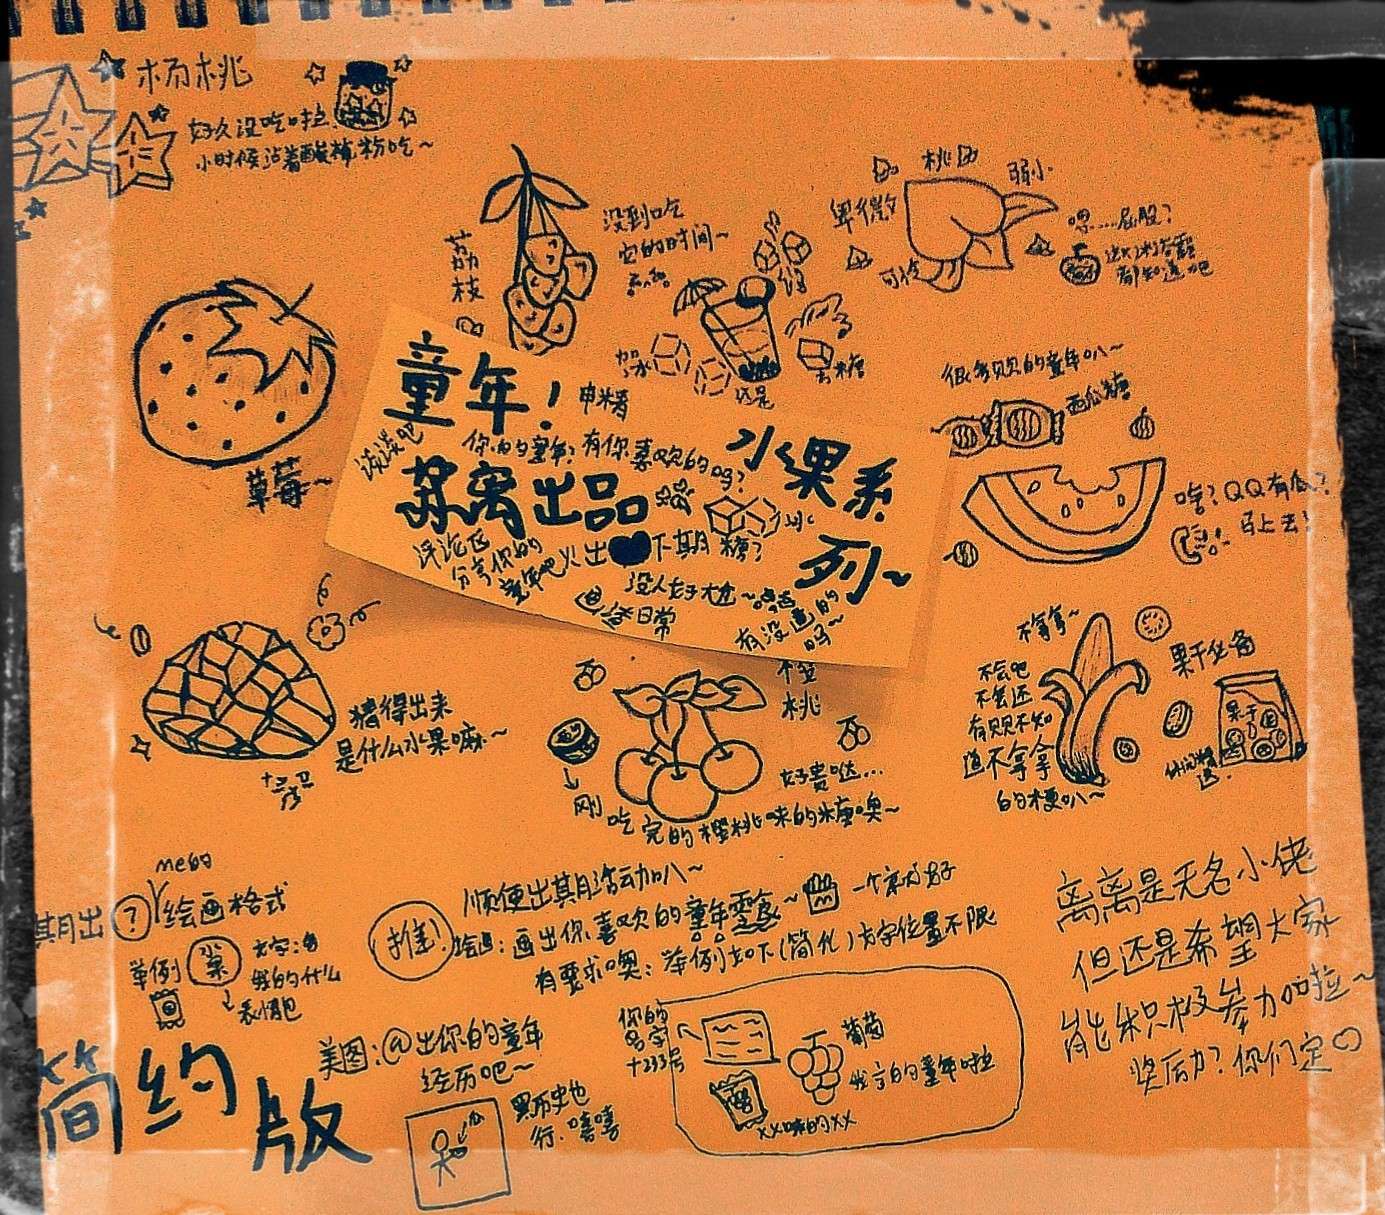 杨桃
好久没吃啦
小时候沾着酸梅粉吃~
荔枝
没到吃
它的时间~
桃囚
弱小
卑微
可怜
嗯……屁股?
都知道吧
加冰
还是
去糖
草莓~
童年!
申精
谈谈吧
你的童年?有你喜欢的吗?
水果系
列~
离出品
冰
评论区
分享你的
童年吧
火出
下期糖?
没人好尬~嘻嘻
画渣日常
有没道的
吗~
很多贝贝的童年叭~
西瓜糖
啥?QQ有瓜?
马上去!
猜得出来
是什么水果嘛~
樱
桃
好贵哒…
刚吃完的樱桃味的糖噢~
不拿拿~
不会吧
不会还
有贝不知
道不拿拿
的梗叭~
果干必备
果干
me的
其月出?绘画格式
举例
文字:
的什么
表情包
简约版
推!
顺便出其月活动加八~
绘画:画出你喜欢的童年零食~一个就好
有要求噢:举例如下(简化)文字位置不限
美图:@出你的童年
经历吧~
黑历史也
行.嘻嘻
你的
名字
+233号
葡萄
的童年啦
XX味的XX
离离是无名小佬
但还是希望大家
能积极参加啦~
奖励?你们定